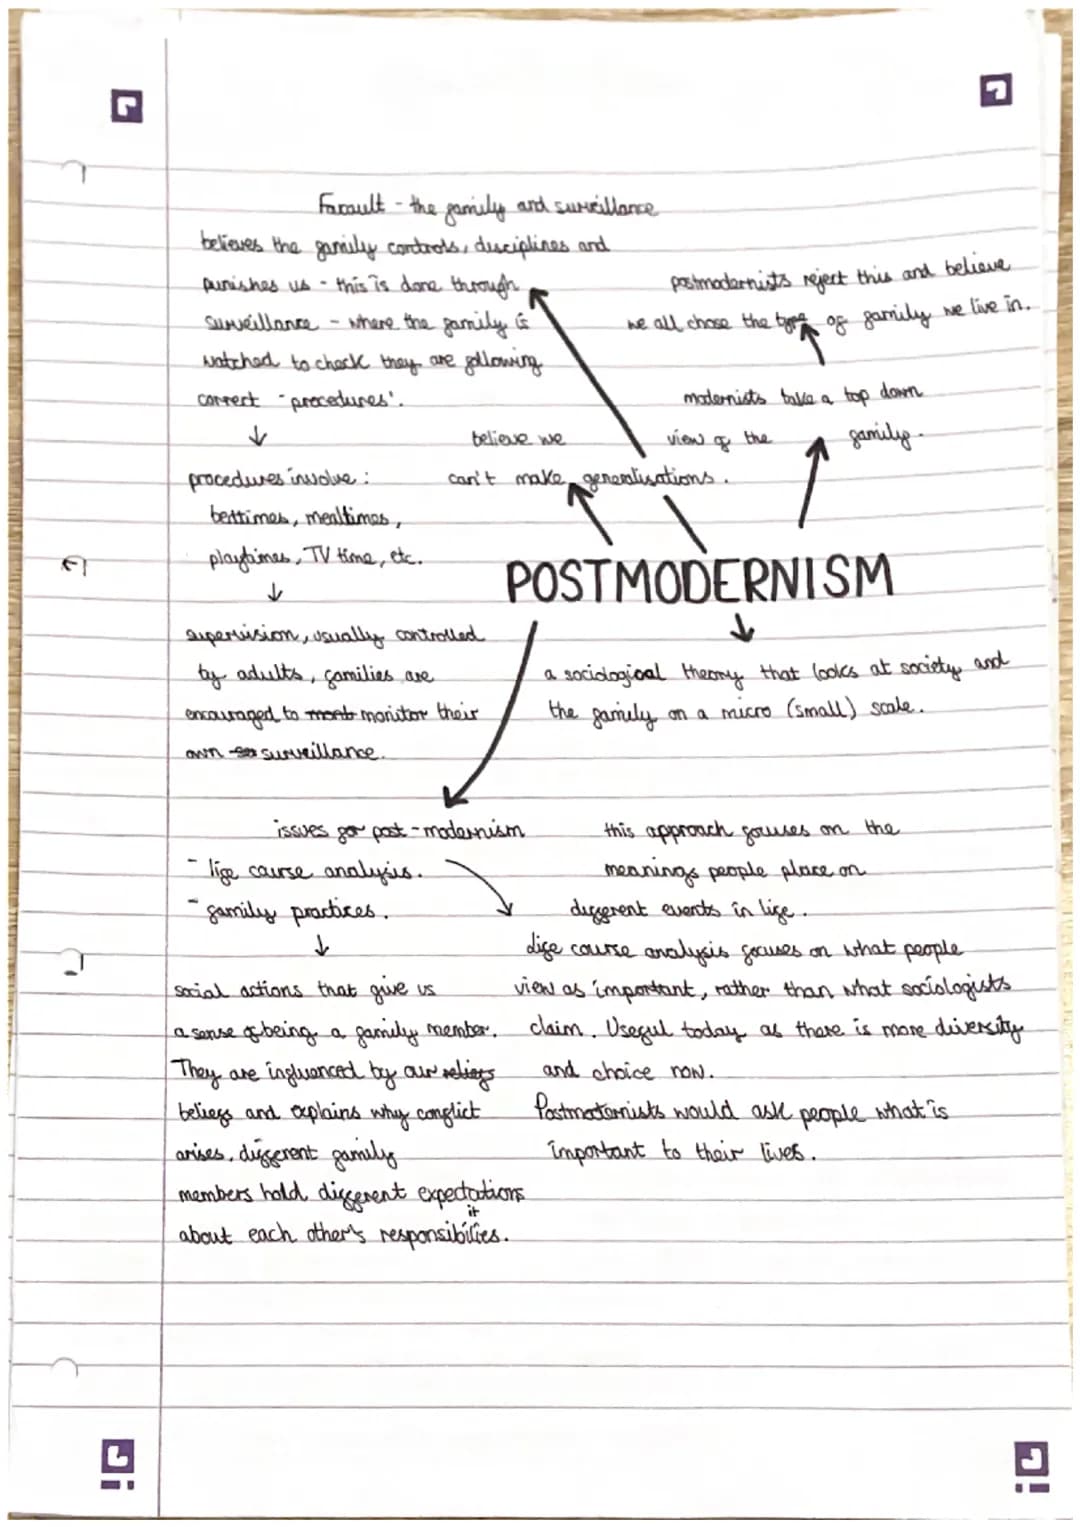 Facault - the family and surveillance
believes the family controls, disciplines and
punishes us - this is done through
surveillance - where the family is
watched to check they are following
correct 'procedures'.
↓
procedures involve:
bedtimes, mealtimes,
playtimes, TV time, etc.
↓
supervision, usually controlled
by adults, families are
encouraged to monitor their
own surveillance.
postmodernists reject this and believe
we all chose the type of family we live in.
modernists take a top down
view of the family.
believe we
can't make generalisations.
POSTMODERNISM
a sociological theory that looks at society and
the family on a micro (small) scale.
issues for post-modernism
- life course analysis.
- family practices.
↓
social actions that give us
a sense of being a family member.
They are influenced by our
beliefs and explains why conflict
arises, different family
members hold different expectations
about each other's responsibilities.
this approach focuses on the
meanings people place on
different events in life.
life course analysis focuses on what people
view as important, rather than what sociologists
claim. Useful today as there is more diversity
and choice now.
Postmodernists would ask people what is
important to their lives.